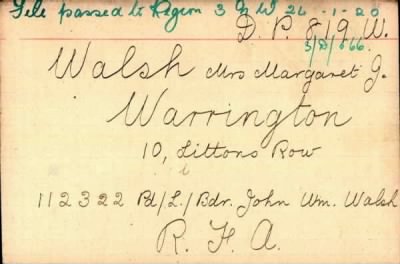 File passed to Region 3 & W 26-1-20
D. P. 8/9 W.
3/D/866.
Walsh Mrs Margaret J.
Warrington
10, Littons Row
112322 Pd/L./Bdr. John Wm. Walsh
R. F. A.